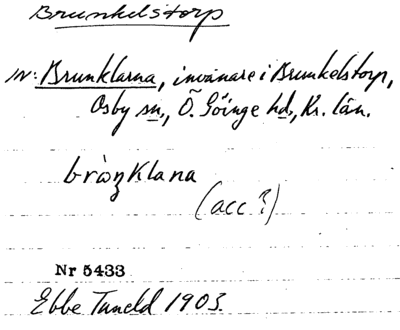 Brunkelstorp
inv: Brunklarna, invånare i Brunkelstorp,
Osby sn, Ö. Göinge hd, Kr. län.
Klana
(acc?)
Nr 5433
Ebbe Tuneld 1903.